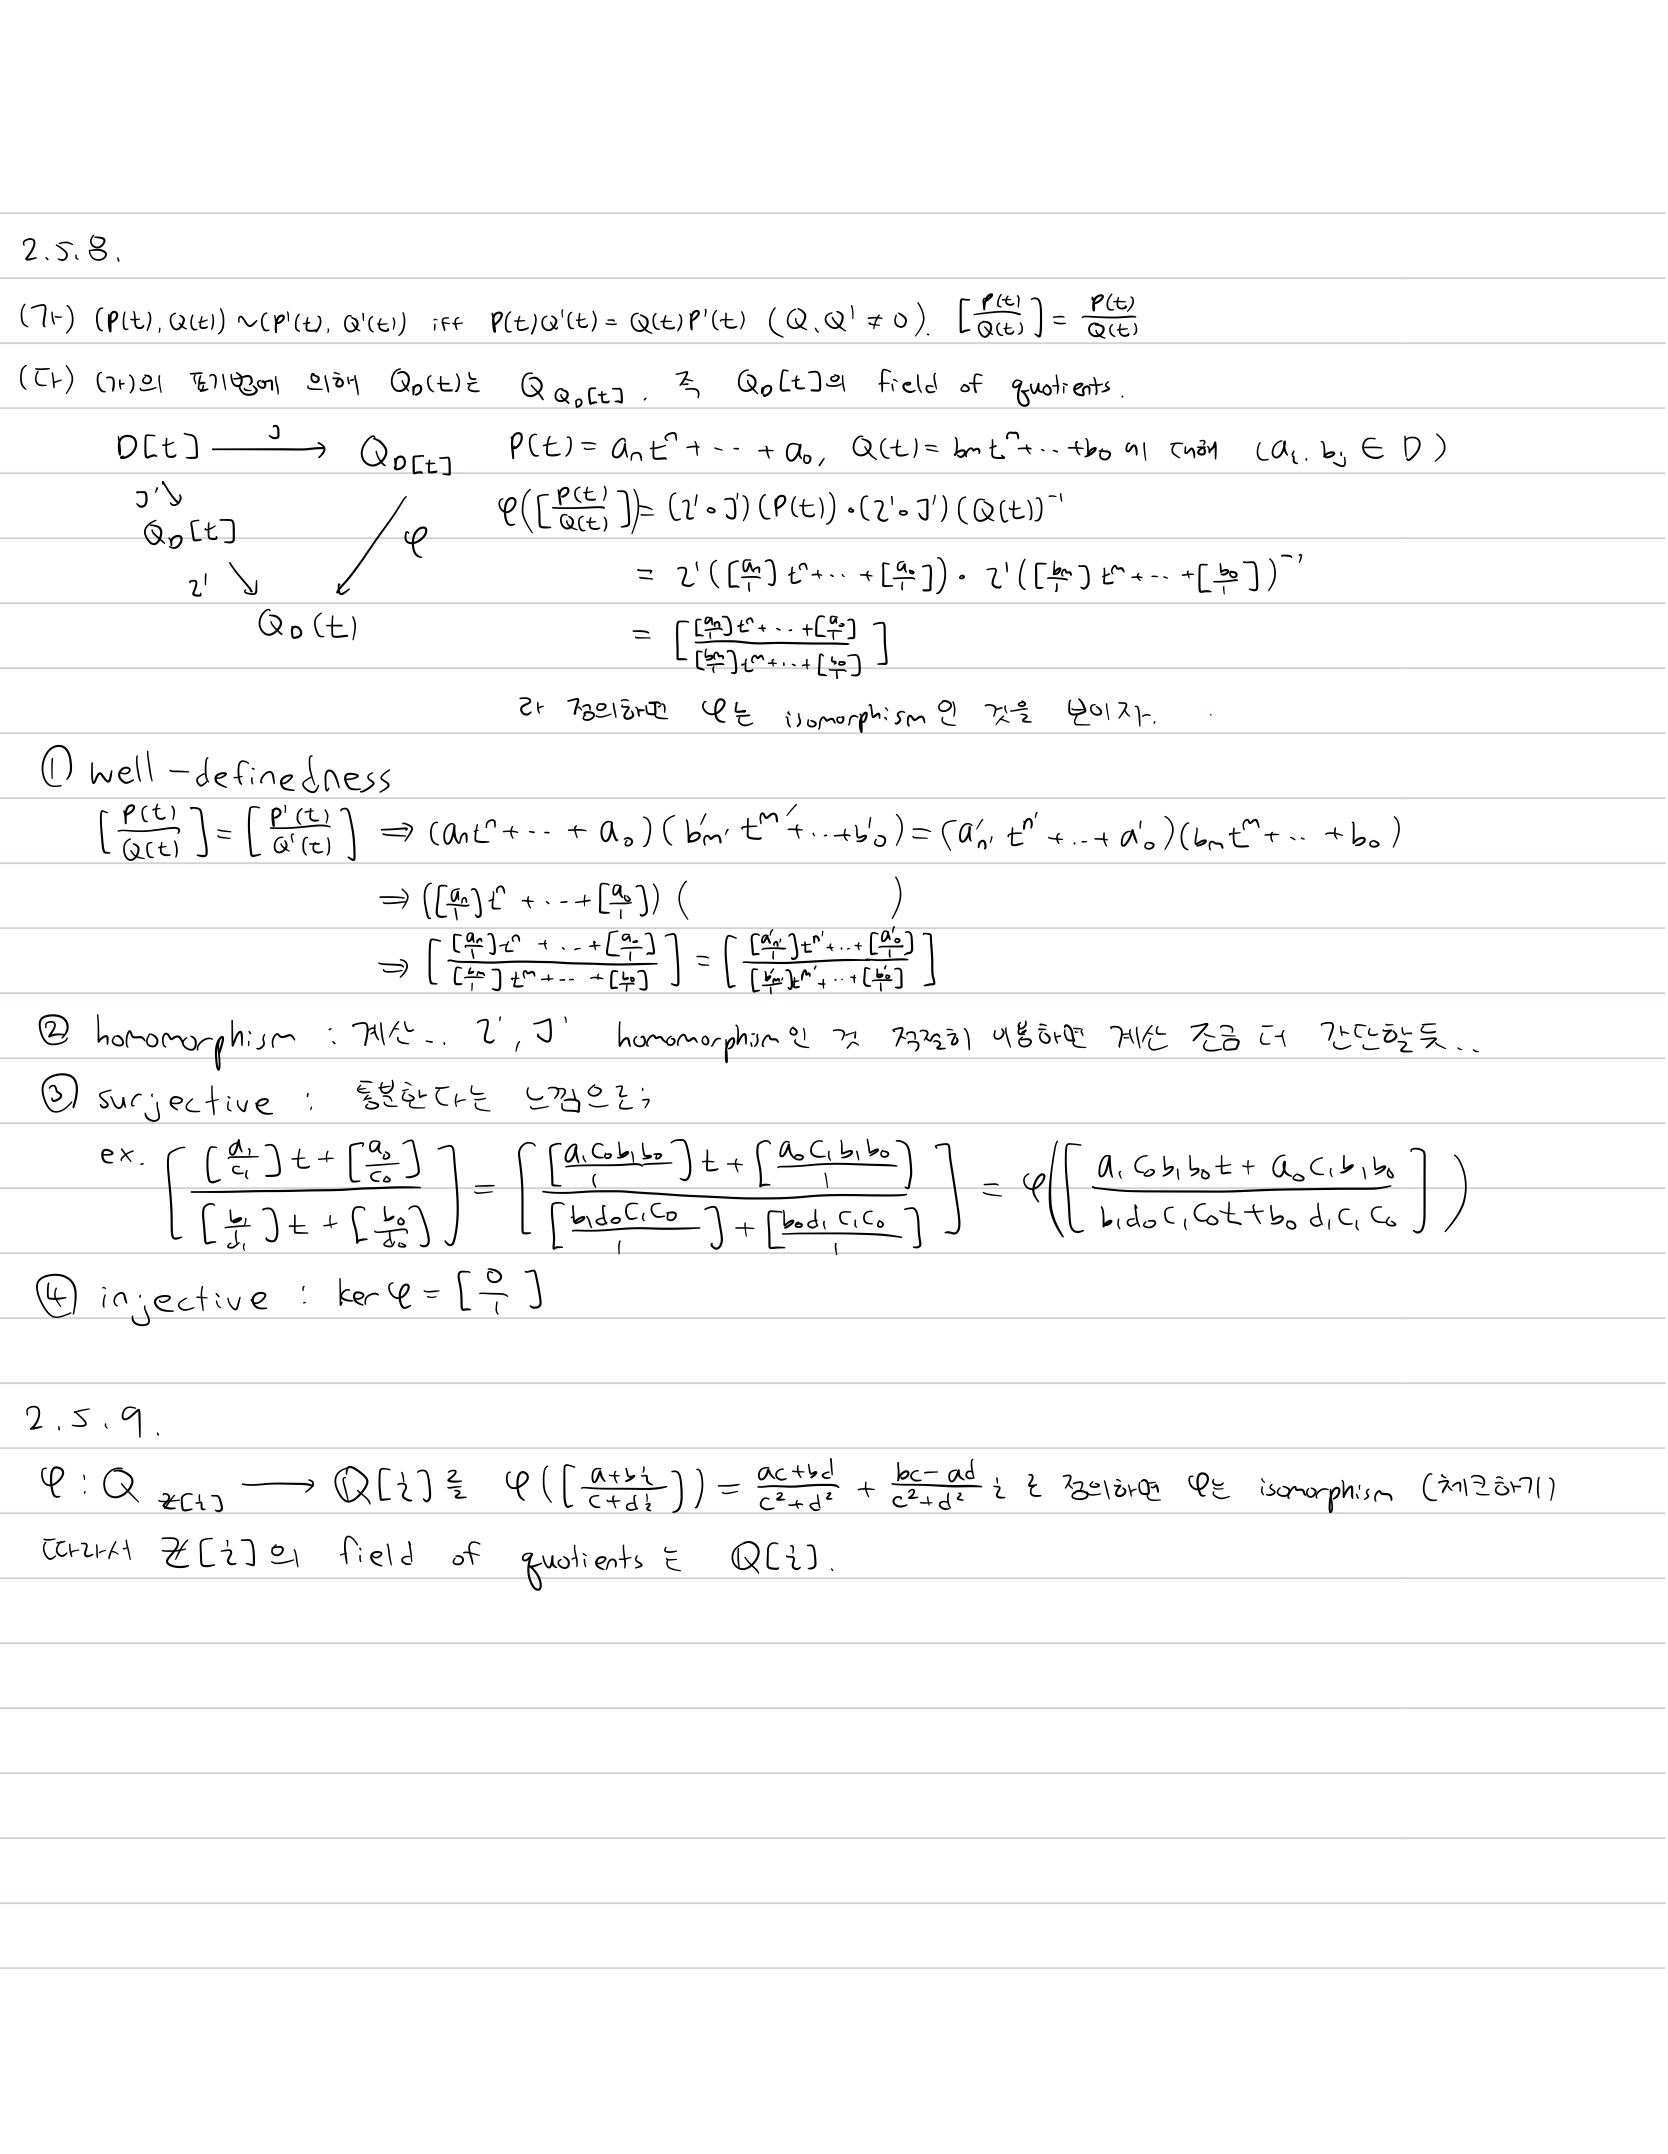 2.5.8.
(가) (P(t), Q(t)) ~ (P'(t), Q'(t)) iff P(t)Q'(t) = Q(t)P'(t) (Q, Q' ≠ 0). [P(t)/Q(t)] = P(t)/Q(t)
(다) (가)의 표기법에 의해 Q_D(t)는 Q_{Q_D[t]}. 즉 Q_D[t]의 field of quotients.
D[t] --J--> Q_{D[t]} P(t) = a_n t^n + ‥ + a_0, Q(t) = b_m t^n + ‥ + b_0 에 대해 (a_i, b_j ∈ D)
J' ↘ φ([P(t)/Q(t)]) = (2'∘J')(P(t))·(2'∘J')(Q(t))^{-1}
Q_D[t] ↙ φ
2' ↘ = 2'([a_n/1] t^n + ‥ + [a_0/1]) · 2'([b_m/1] t^m + ‥ + [b_0/1])^{-1}
Q_D(t) = [([a_n/1] t^n + ‥ + [a_0/1])/([b_m/1] t^m + ‥ + [b_0/1])]
라 정의하면 φ는 isomorphism인 것을 보이자.
① well-definedness
[P(t)/Q(t)] = [P'(t)/Q'(t)] ⇒ (a_n t^n + ‥ + a_0)(b'_{m'} t^{m'} + ‥ + b'_0) = (a'_{n'} t^{n'} + ‥ + a'_0)(b_m t^m + ‥ + b_0)
⇒ ([a_n/1] t^n + ‥ + [a_0/1]) ( )
⇒ [([a_n/1] t^n + ‥ + [a_0/1])/([b_m/1] t^m + ‥ + [b_0/1])] = [([a'_{n'}/1] t^{n'} + ‥ + [a'_0/1])/([b'_{m'}/1] t^{m'} + ‥ + [b'_0/1])]
② homomorphism : 계산.. 2', J' homomorphism인 것 적절히 이용하면 계산 조금 더 간단할듯..
③ surjective : 통분한다는 느낌으로;
ex. [([a_1/c_1] t + [a_0/c_0])/([b_1/d_1] t + [b_0/d_0])] = [([a_1c_0b_1b_0/1] t + [a_0c_1b_1b_0/1])/([b_1d_0c_1c_0/1] + [b_0d_1c_1c_0/1])] = φ([(a_1c_0b_1b_0t + a_0c_1b_1b_0)/(b_1d_0c_1c_0t + b_0d_1c_1c_0)])
④ injective : ker φ = [0/1]
2.5.9.
φ : Q_{ℤ[i]} ⟶ ℚ[i]를 φ([(a+bi)/(c+di)]) = (ac+bd)/(c²+d²) + (bc-ad)/(c²+d²) i 로 정의하면 φ는 isomorphism (체크하기)
따라서 ℤ[i]의 field of quotients는 ℚ[i].